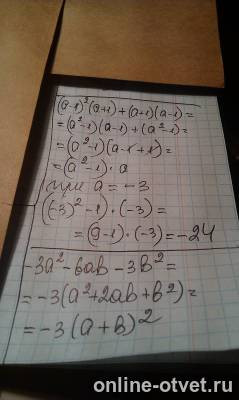 (a-1)²(a+1)+(a+1)(a-1)=
=(a²-1)(a-1)+(a²-1)=
=(a²-1)(a-1+1)=
=(a²-1)·a
при a=-3
((-3)²-1)·(-3)=
=(9-1)·(-3)=-24
-3a²-6ab-3b²=
=-3(a²+2ab+b²)=
=-3(a+b)²
online-otvet.ru